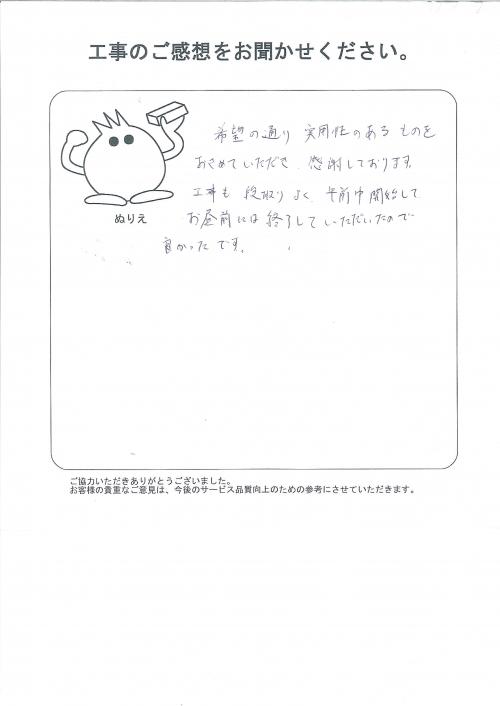 工事のご感想をお聞かせください。
希望の通り 実用性のあるものを
おさめていただき、感謝しております。
工事も 段取りよく 午前中開始して
お昼前には終了していただいたので
良かったです。
ぬりえ
ご協力いただきありがとうございました。
お客様の貴重なご意見は、今後のサービス品質向上のための参考にさせていただきます。